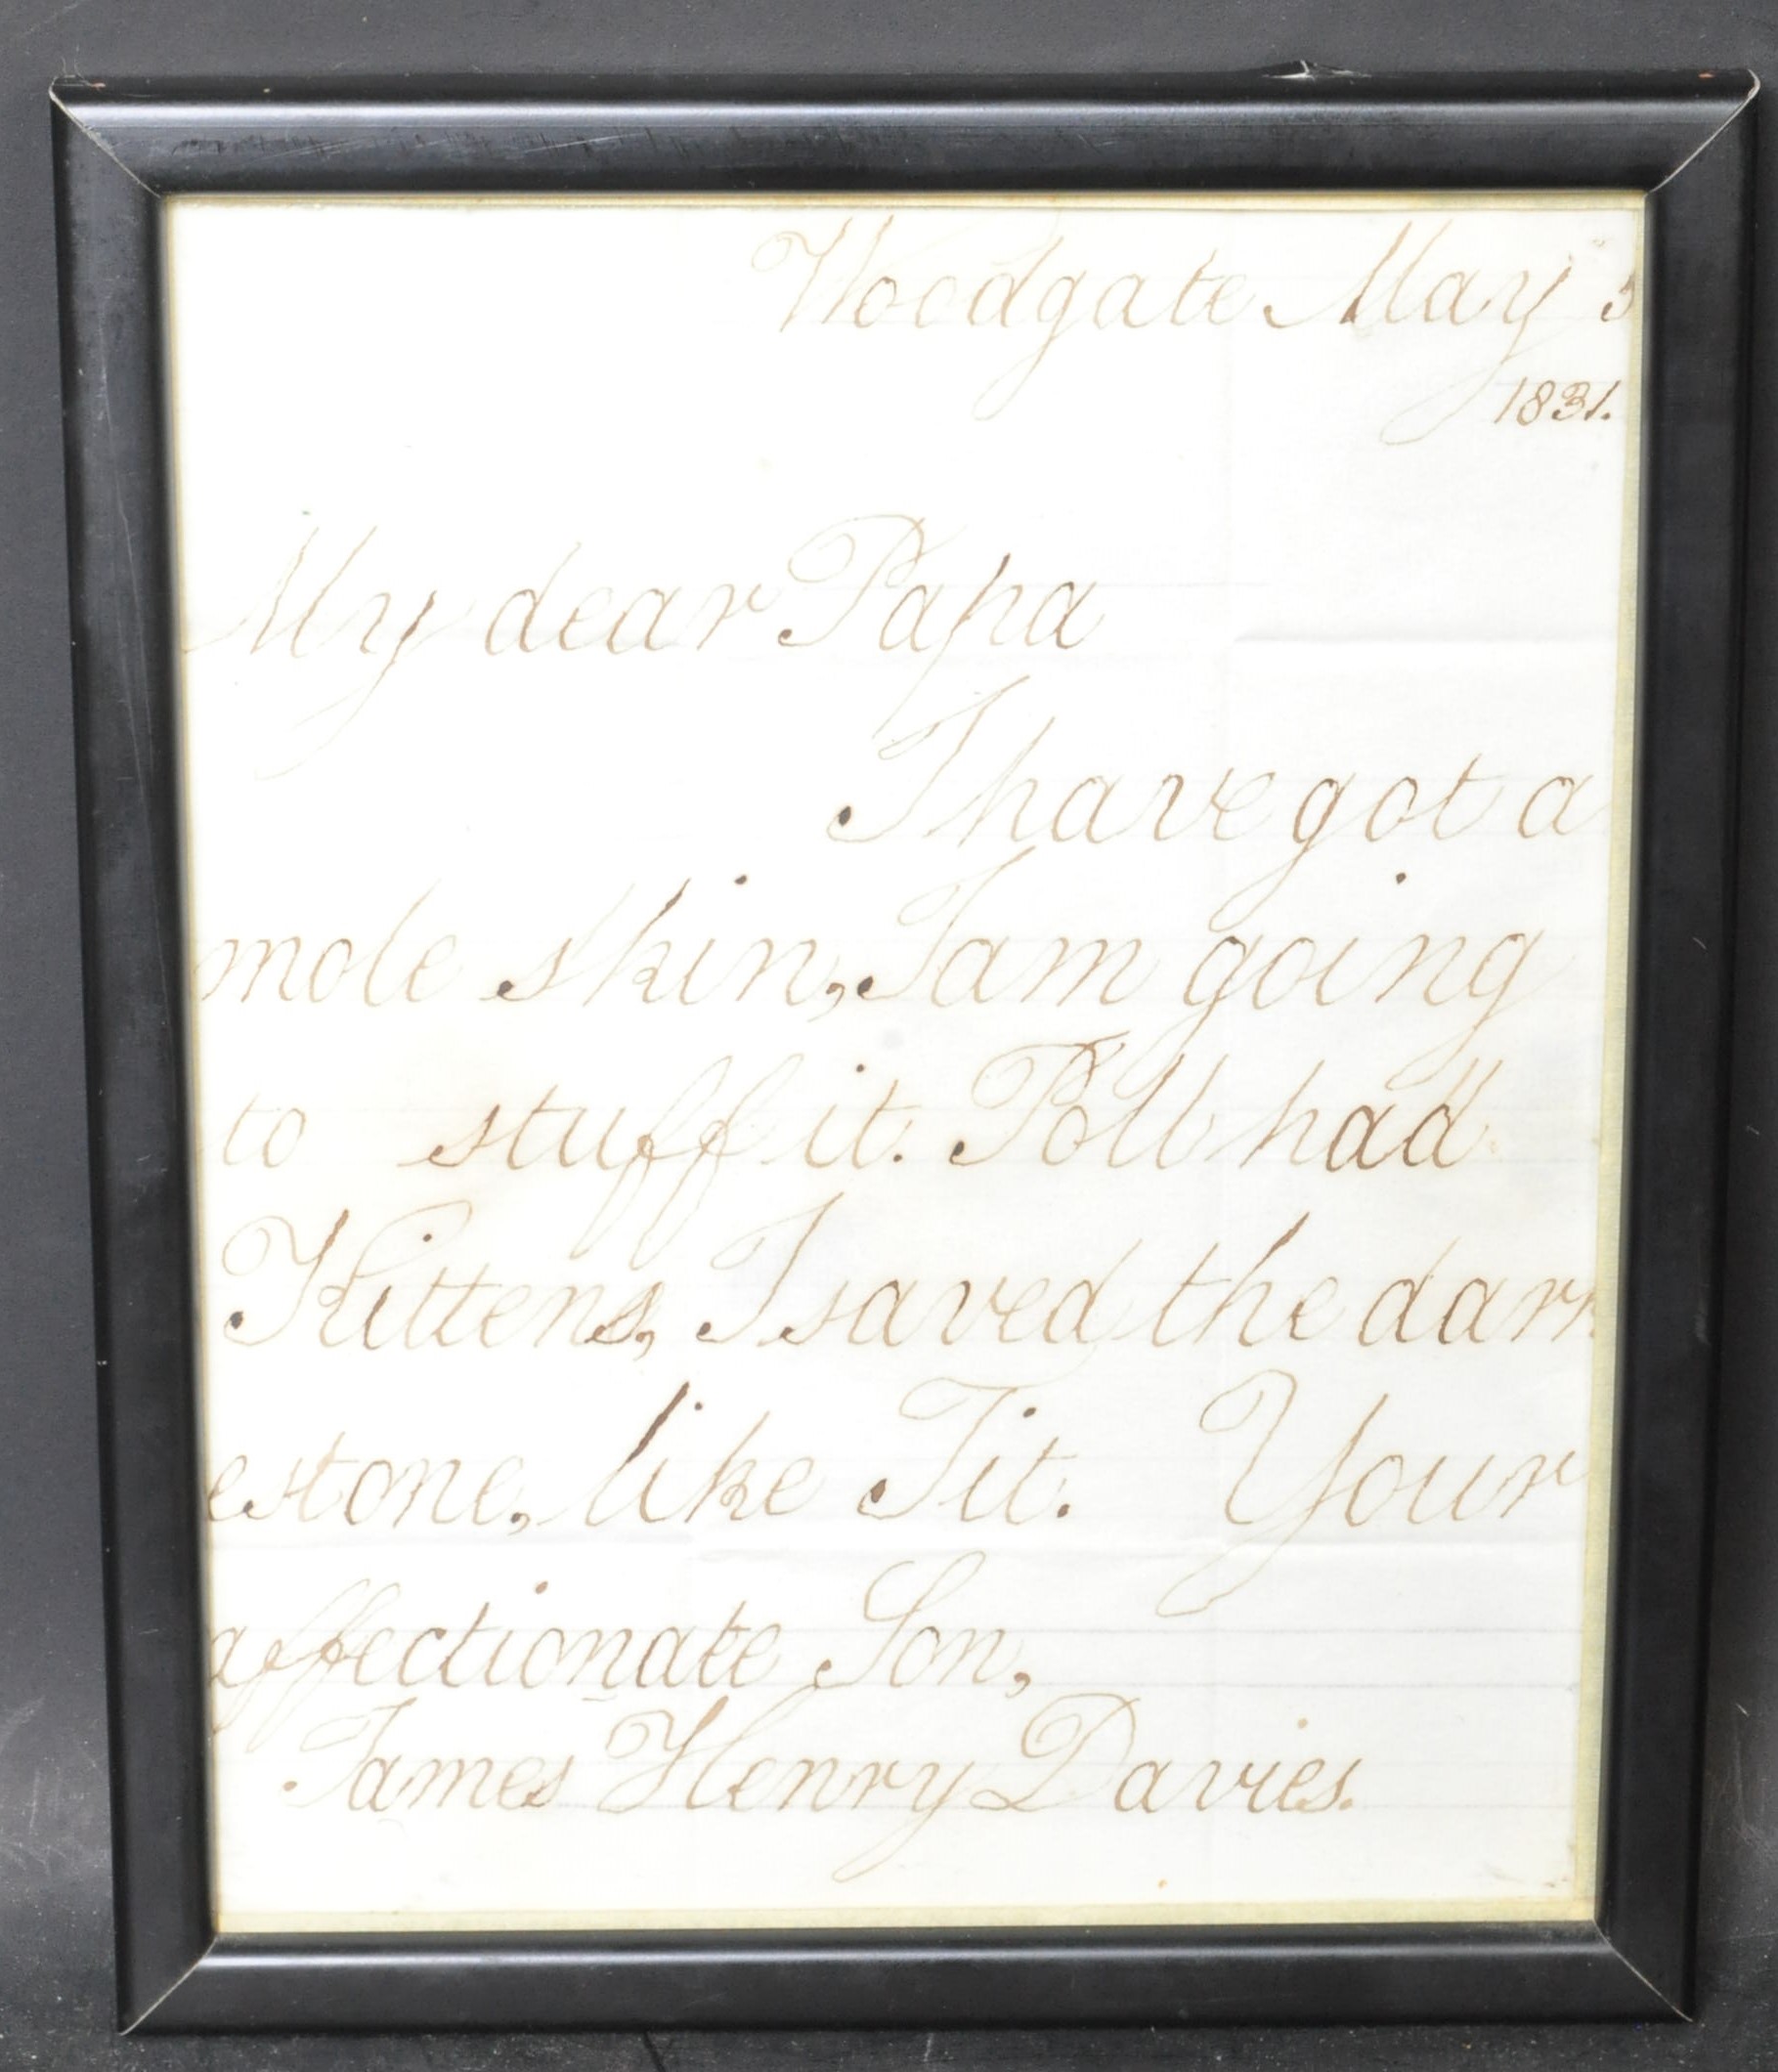 Woodgate May 3
1831.
My dear Papa
I have got a
mole skin, I am going
to stuff it. Poll had
Kittens, I saved the dark
est one, like Tit. Your
affectionate Son,
James Henry Davies.